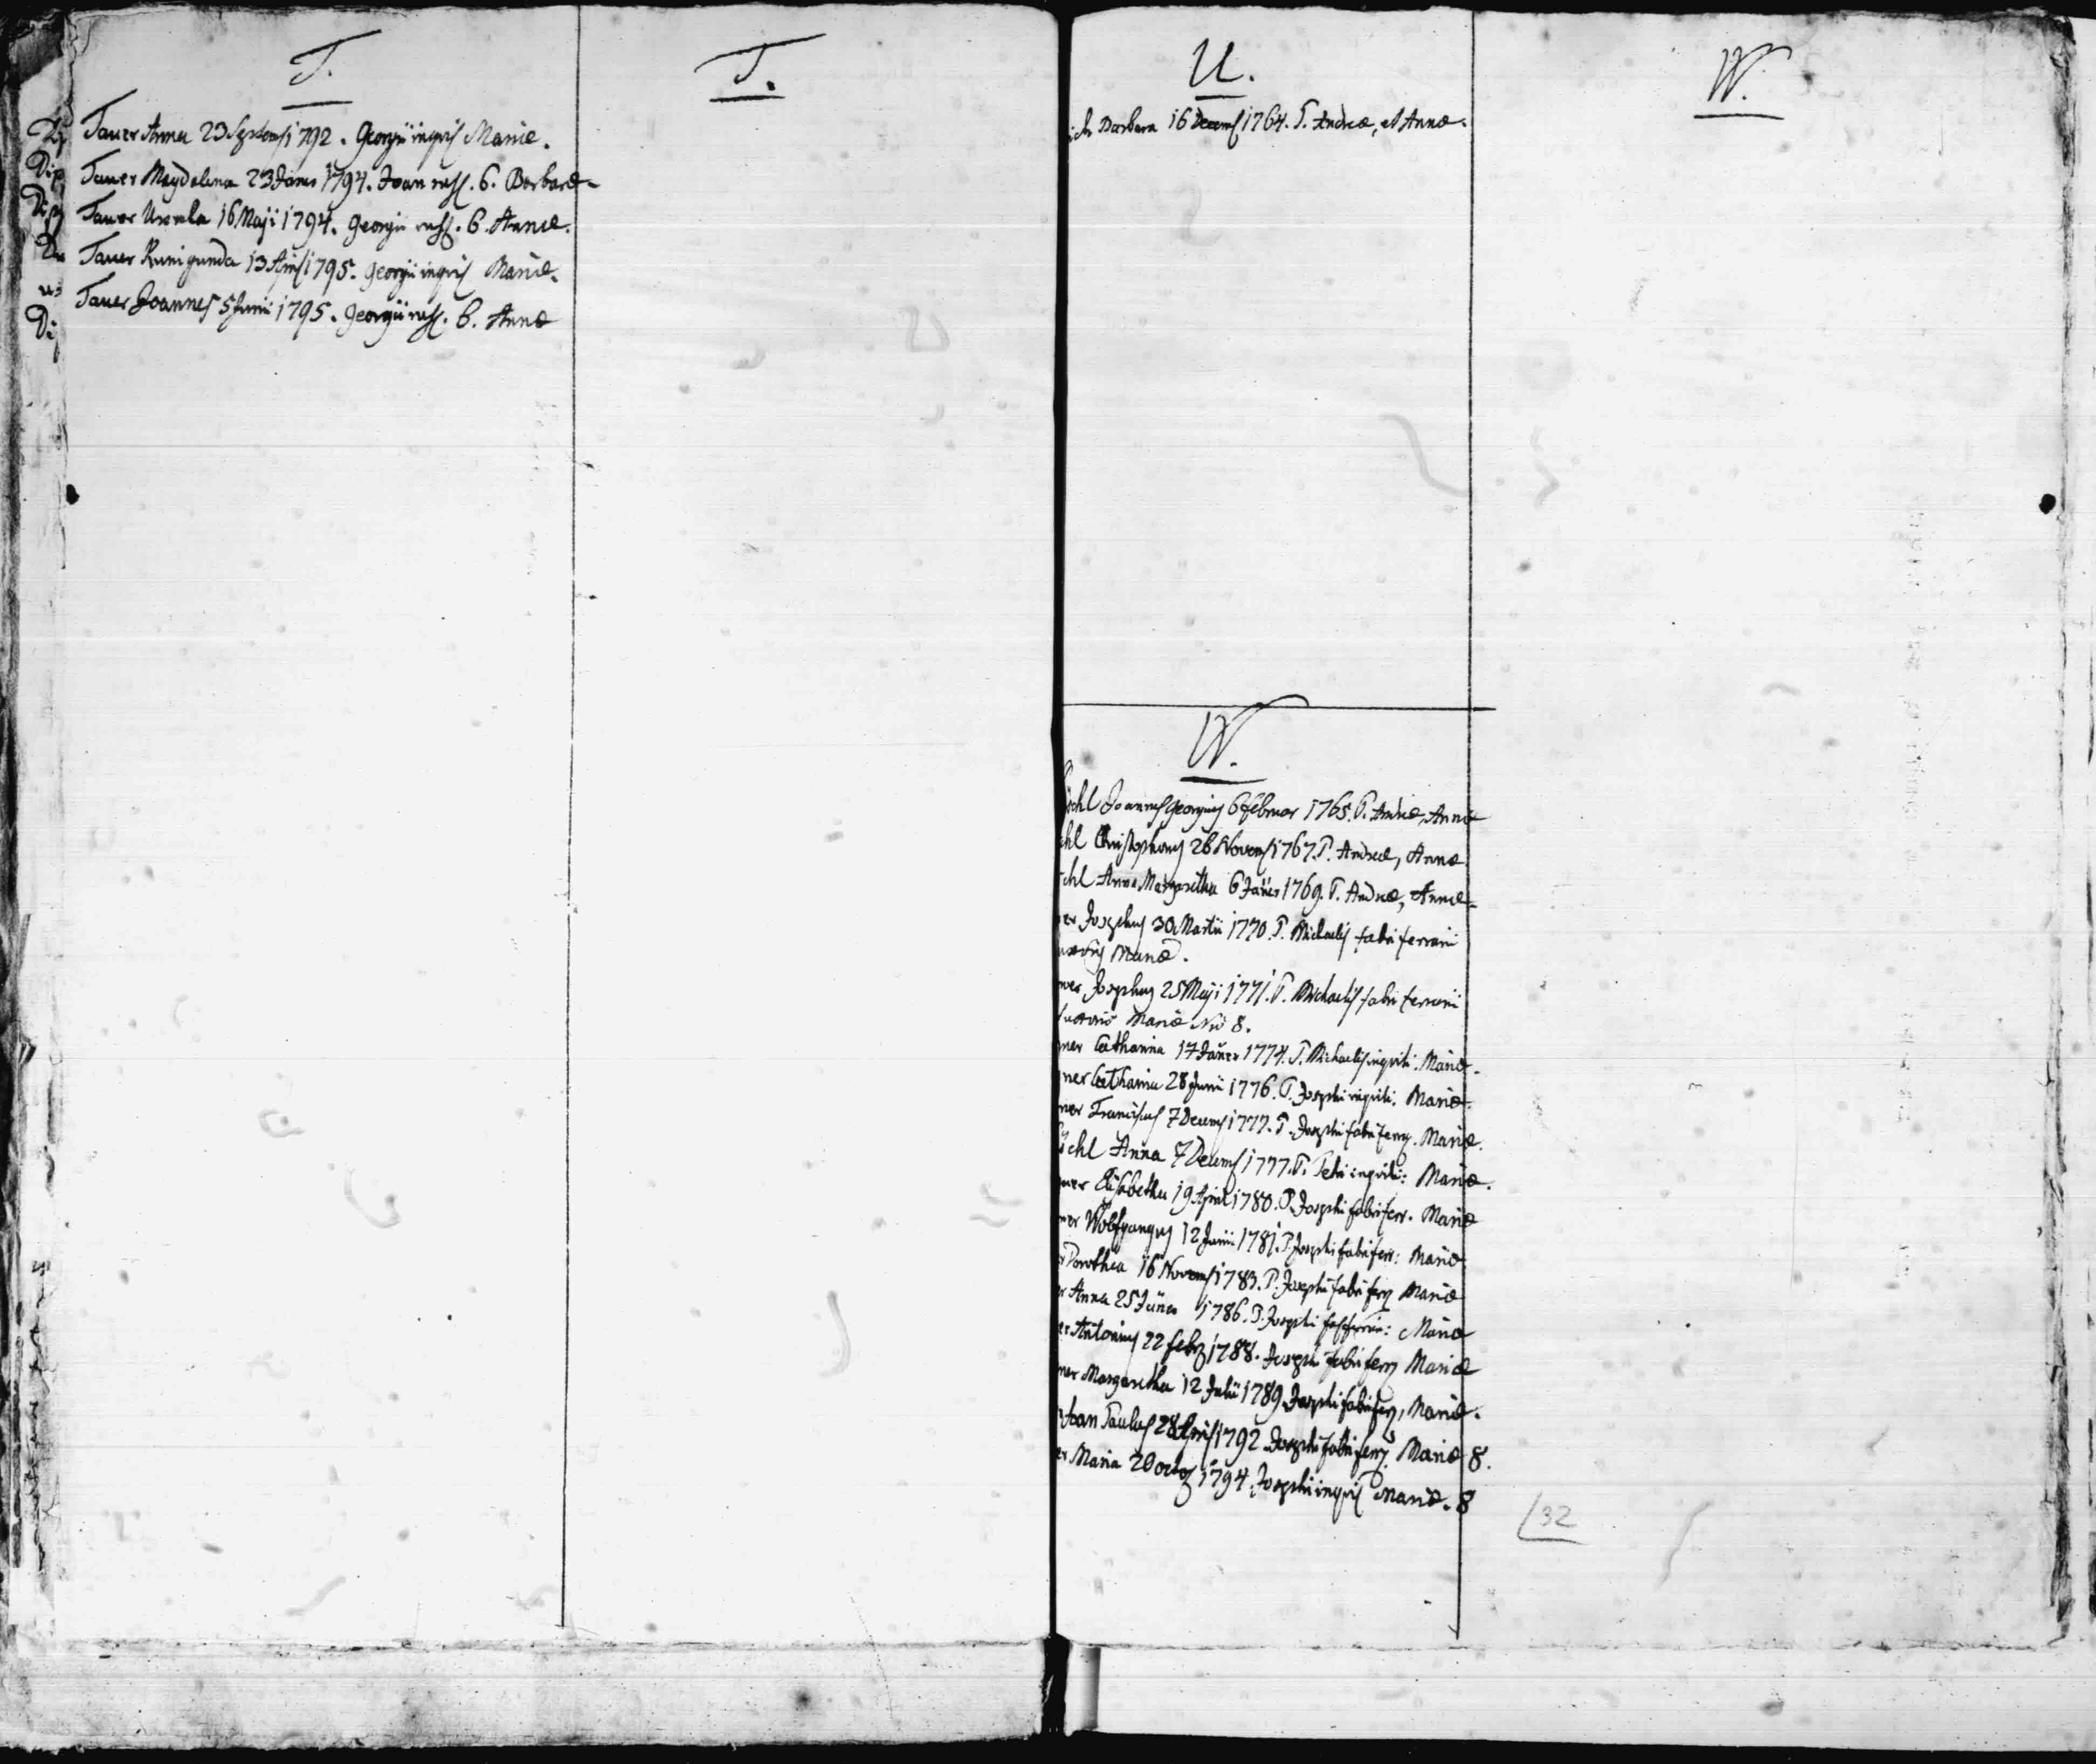 T.
Tauer Anna 23 Septemb 1792. Georgii inqvis Mariæ.
Tauer Magdalena 23 Janer 1794. Joan rust. 6. Barbaræ
Tauer Ursula 16 Maji 1794. Georgii rust. 6. Annæ.
Tauer Kunigunda 13 Apris 1795. Georgii inqvis Mariæ.
Tauer Joannes 5 Junii 1795. Georgii rust. 6. Annæ
Di
T.
U.
ich Barbara 16 Decemb 1764. P. Andreæ, et Annæ.
W.
schl Joannes Georgius 6 Februar 1765. P. Andreæ, Annæ
chl Christophorus 26 Novemb 1767. P. Andreæ, Annæ
chl Anna Margaretha 6 Janer 1769. P. Andreæ, Annæ
er Josephus 30 Martii 1770. P. Michaelis fabri ferrarii
uxoris Mariæ.
ner Josephus 25 Maji 1771. P. Michaelis fabri ferrarii
uxoris Mariæ No 8.
ner Catharina 17 Janer 1774. P. Michaelis inqvili. Mariæ.
ner Catharina 28 Junii 1776. P. Josephi inqvili. Mariæ.
ner Franciscus 7 Decemb 1777. P. Josephi fabri ferrz. Mariæ.
schl Anna 7 Decemb 1777. P. Petri inqvili: Mariæ.
ner Elisabetha 19 April 1780. P. Josephi fabri ferr. Mariæ
ner Wolfgangus 12 Junii 1781. P. Josephi fabri ferr: Mariæ
r Dorothea 16 Novemb 1783. P. Josephi fabri ferrz Mariæ
r Anna 25 1786. P. Josephi Mariæ
er Antonius 22 Febrz 1788. Josephi fabri ferrz Mariæ
ner Margaretha 12 Julii 1789. Josephi fabri ferrz, Mariæ.
Joan Paulus 28 Apris 1792 Josephi fabri ferrz. Mariæ 8.
er Maria 20 octoz 1794. Josephi inqvis Mariæ. 8
W.
32